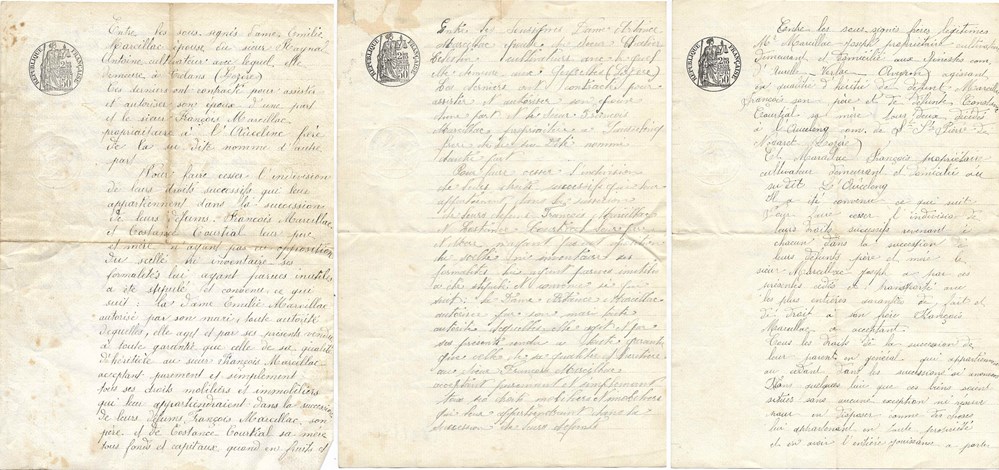 Entre les sous signés dame Emilie
Marcillac épouse du sieur Raynal
Antoine cultivateur avec lequel elle
demeure à (Lozère)
Ces derniers ont contracté pour assister
et autoriser son époux d'une part
et le sieur François Marcillac
propriétaire à l' frère
de la su dite nomme d'autre
part
Pour faire cesser l'indivision
de leurs droits successifs qui leur
appartiennent dans la succession
de leurs défunts François Marcillac
et Costance Courtial leur père
et mère n'ayant pas eu opposition
du scellé ni inventaire ses
formalités lui ayant parues inutiles
a été stipulé et convenu ce qui
suit : la dame Emilie Marcillac
autorisé par son mari, toute autorité
dequelles, elle agit et par ses présents vendu
à toute garantie que celle de sa qualité
d'héritière au sieur François Marcillac
acceptant purement et simplement
tous ses droits mobiliers et immobiliers
qui leur appartiendraient dans la succession
de leurs défunts François Marcillac, son
père et de Costance Courtial sa mère
tous fonds et capitaux quand en fruits et
REPUBLIQUE FRANÇAISE
Entre les soussignés Dame
épouse du sieur
cultivateur avec le quel
elle demeure aux (Lozère)
Ces derniers ont contracté pour
assister et autoriser son époux
d'une part et le sieur François
Marcillac propriétaire à
frère de la su dité nommé
d'autre part
Pour faire cesser l'indivision
de leurs droits successifs qui leur
appartiennent dans la succession
de leurs défunts François Marcillac
et leurs père
et Mère n'ayant pas eu
de scellé ni inventaire ses
formalités leur ayant parues inutiles
a été stipulé et convenu ce qui
suit : la Dame Marcillac
autorisée par son mari toute
autorité dequelles elle agit et par
ses présents vendu à toute garantie
que celle de sa qualité d'héritière
au sieur François Marcillac
acceptant purement et simplement
tous ses droits mobiliers et immobiliers
qui leur appartiendraient dans la
succession de leurs défunts
REPUBLIQUE FRANÇAISE
Entre les sous signés frères légitimes
Mr Marcillac Joseph propriétaire cultivateur
demeurant et domicilié aux com.
d' (Aveyron) agissant
en qualité d'héritier de défunt Marcillac
François son père et de défunte Constance
Courtial sa mère tous deux décédés
à l' com. de St Pierre de
Nogaret (Lozère)
Et Marcillac François propriétaire
cultivateur demeurant et domicilié au
su dit
Il a été convenu ce qui suit
Pour faire cesser l'indivision de
leurs droits successifs revenant à
chacun dans la succession de
leurs défunts père et mère le
sieur Marcillac Joseph a par ses
présentes cédé et transporté avec
les plus entières garanties de fait et
de droit à son frère François
Marcillac a acceptant.
Tous les droits de la succession de
leur parents en général qui appartiennent
au cédant dans les successions
Dans quelques lieu que ces biens soient
situés sans aucune exception ni
pour en disposer comme des choses
lui appartenant en toute propriété
et en avoir l'entière jouissance a partir